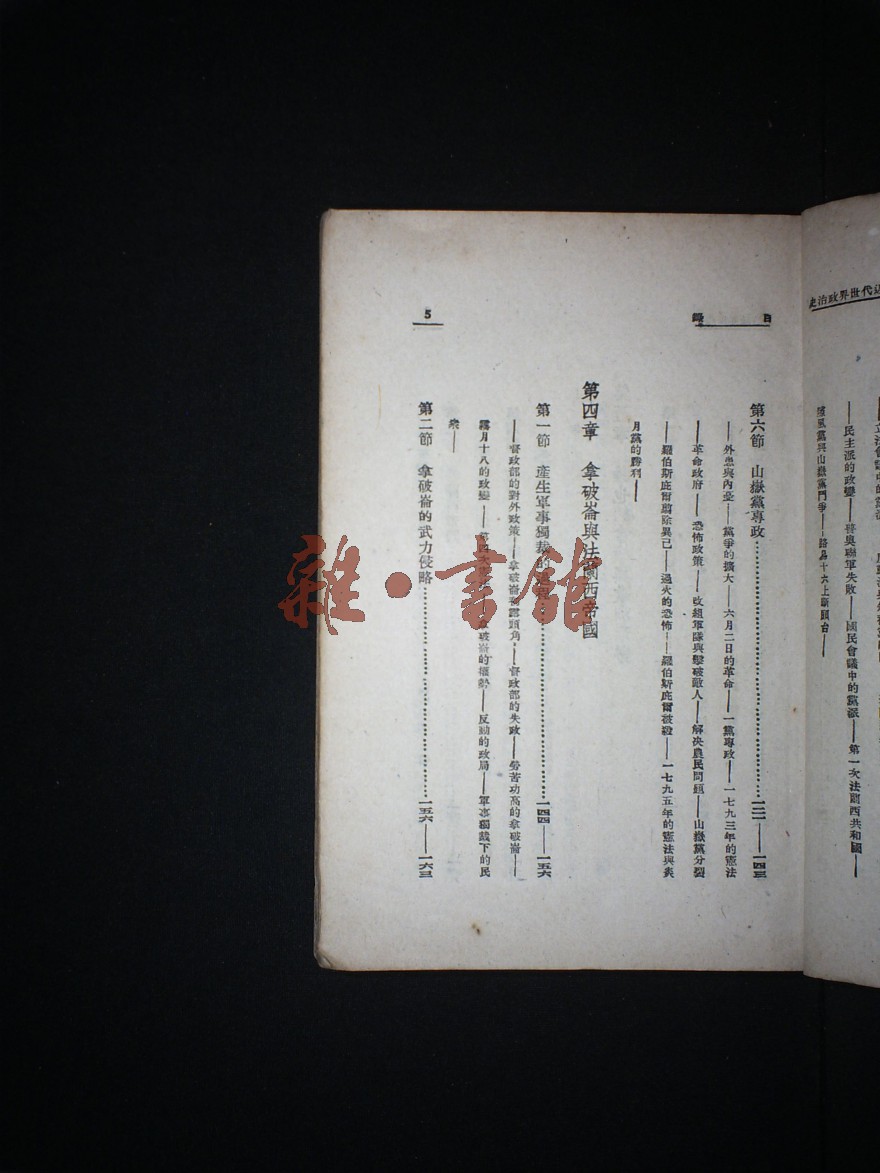 代世界政治史
——民主派的政變——普奧聯軍失敗——國民會議中的黨派——第一次法蘭西共和國——
黨與山嶽黨鬥爭——路易十六上斷頭台——
目錄
第六節 山嶽黨專政…………——一四三
——外患與內憂——黨爭的擴大——六月二日的革命——一黨專政——一七九三年的憲法
——革命政府——恐怖政策——改組軍隊與擊破敵人——解決農民問題——山嶽黨分裂
——羅伯斯庇爾剪除異己——過火的恐怖——羅伯斯庇爾被殺——一七九五年的憲法與炎
月黨的勝利——
第四章 拿破崙與法蘭西帝國
第一節 產生軍事獨裁的過程…………一四四——一五六
——督政部的對外政策——拿破崙初露頭角——督政部的失政——勞苦功高的拿破崙——
霧月十八的政變——第四次憲法——拿破崙的權勢——反動的政局——軍事獨裁下的民
衆——
第二節 拿破崙的武力侵略…………一五六——一六三
5
雜·書館